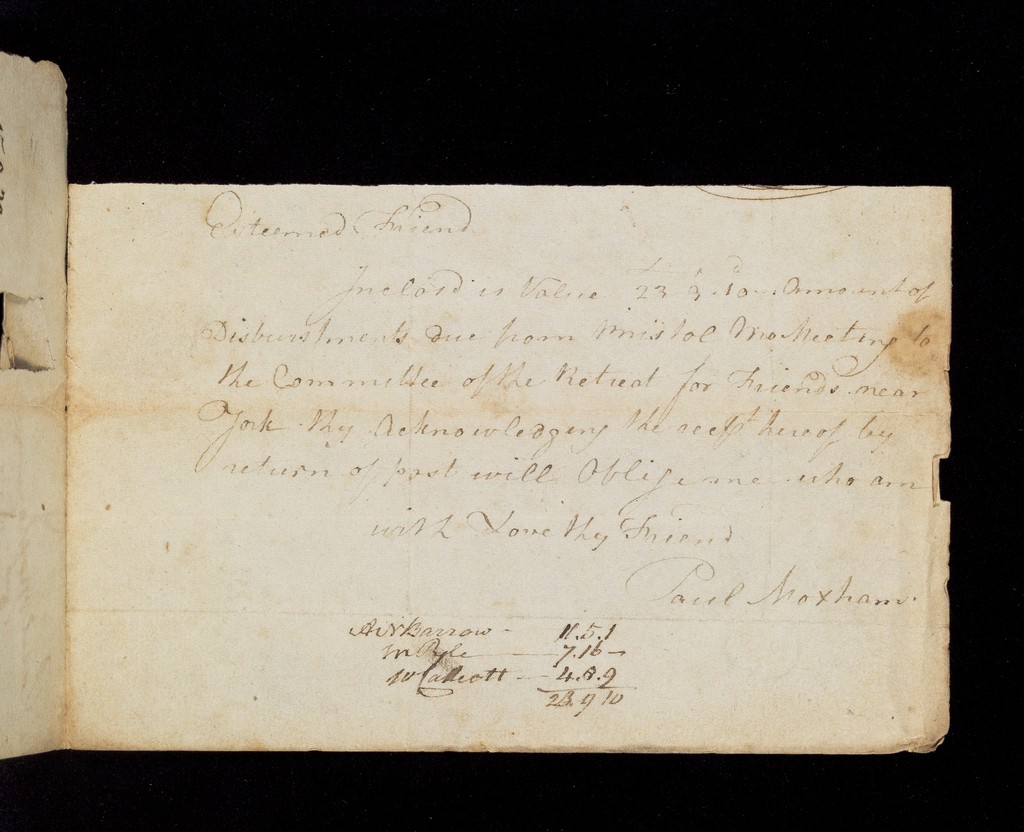 Esteemed Friend
Inclos'd is Value £ 23 " 9 s. 10 d Amount of
Disburstments due from Bristol Mo Meeting to
the Committee of the Retreat for Friends near
York. thy Acknowledging the recpt hereof by
return of post will Oblige me who am
with Love thy Friend
Paul Moxham.
Barrow - 11.5.1
7.16 -
4.8.9
23.9 10